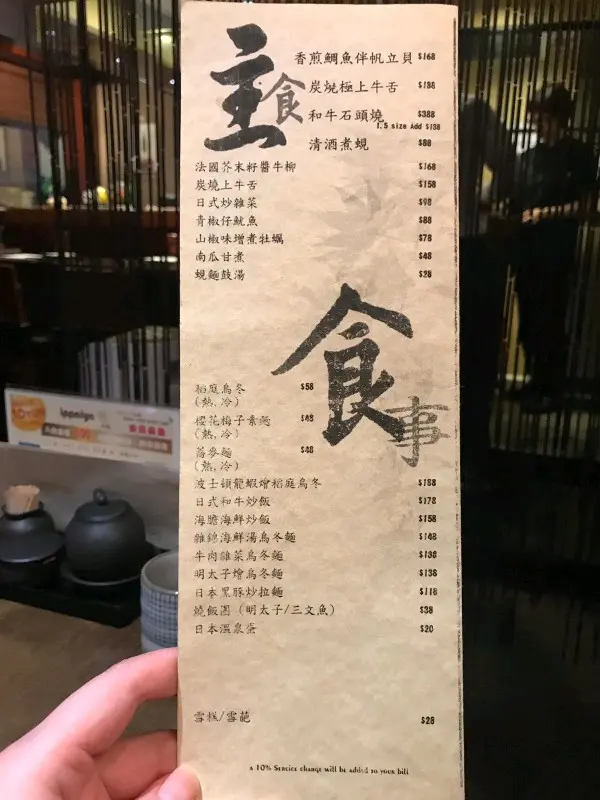 主食
香煎鯛魚伴帆立貝 $168
炭燒極上牛舌 $138
和牛石頭燒 $388
1.5 size Add $138
清酒煮蜆 $88
法國芥末籽醬牛柳 $168
炭燒上牛舌 $158
日式炒雜菜 $98
青椒仔魷魚 $88
山椒味增煮牡蠣 $78
南瓜甘煮 $48
蜆麵豉湯 $28
食事
稻庭烏冬 $58
(熱,冷)
櫻花梅子素麵 $48
(熱,冷)
蕎麥麵 $48
(熱,冷)
波士頓龍蝦燴稻庭烏冬 $188
日式和牛炒飯 $178
海膽海鮮炒飯 $158
雜錦海鮮湯烏冬麵 $148
牛肉雜菜烏冬麵 $138
明太子燴烏冬麵 $138
日本黑豚炒拉麵 $118
燒飯團 (明太子/三文魚) $38
日本溫泉蛋 $20
雪糕/雪葩 $28
a 10% Service charge will be added to your bill
ippaiya